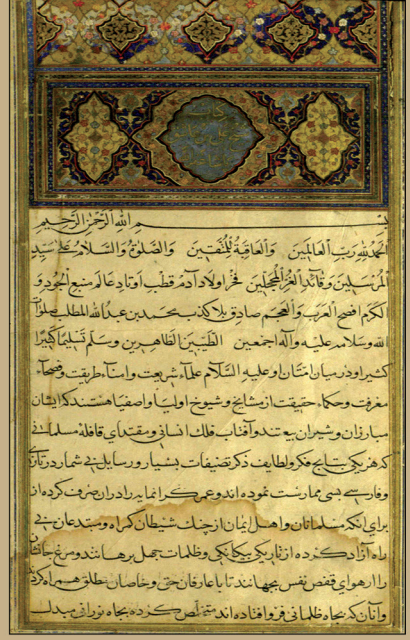 بسم الله الرحمن الرحیم
الحمد لله رب العالمین والعاقبة للمتقین والصلوة والسلام علی سید
المرسلین وقائد الغر المحجلین فخر اولاد آدم قطب اوتاد عالم منبع الجود و
الکرم افصح العرب والعجم صادق بلا کذب محمد بن عبد الله المطلب صلوات
الله وسلامه علیه وآله اجمعین الطیبین الطاهرین وسلم تسلیما کثیرا
کثیرا و در میان امتان او علیه السلام علماء شریعت وامناء طریقت و فصحاء
معرفت وحکماء حقیقت از مشایخ و شیوخ اولیا و اصفیا هستند که ایشان
مبارزان و شیران تند و آفتاب فلک انسانی و مقتدای قافلهٔ مسلمانی
که هر یکی بنتایج فکر و لطایف ذکر تصنیفات بسیار و رسایل بی شمار در تازی
و فارسی بسی ممارست نموده اند و عمر گرانمایه را در ان صرف کرده از
برای آنکه مسلمانان و اهل ایمان از چنک شیطان کمراه و مبتدعان بی
راه آزاد کرده از تاریکی بیکانکی و ظلمات جهل برهانند و مرغ جانشان
را از هوای قفص نفس بجهانند تا با عارفان حق و خاصان مطلق همراه کرد
وآنان که بجاه ظلمانی فرو افتاده اند متخلص کرده بجاه نورانی مبدل